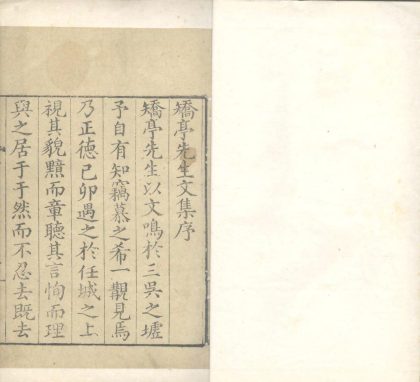 矯亭先生文集序
矯亭先生以文鳴於三吳之墟
予自有知竊慕之希一覯見焉
乃正德己卯遇之於任城之上
視其貌黯而章聽其言恂而理
與之居于于然而不忍去既去